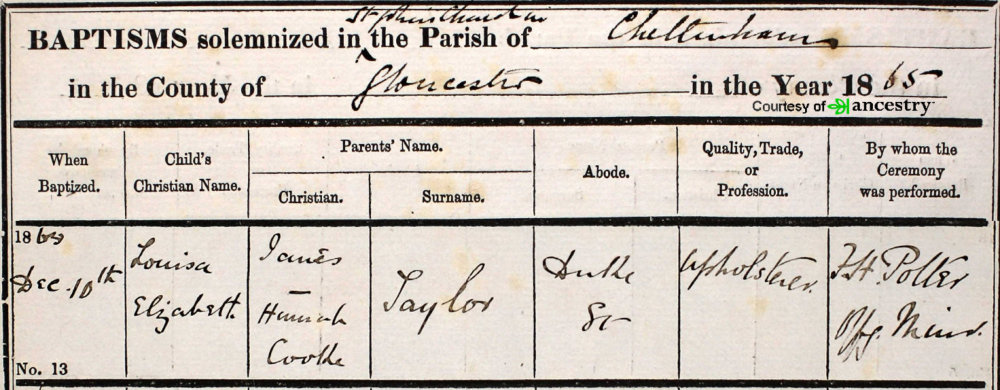 St John's Church in
BAPTISMS solemnized in the Parish of Cheltenham
in the County of Gloucester in the Year 1865
Courtesy of ancestry
When Baptized.
Child's Christian Name.
Parents' Name.
Christian.
Surname.
Abode.
Quality, Trade, or Profession.
By whom the Ceremony was performed.
1865
Dec. 10th
No. 13
Louisa
Elizabeth
James
–
Hannah
Cooke
Taylor
Duke
St
Upholsterer.
Offg. Minr.